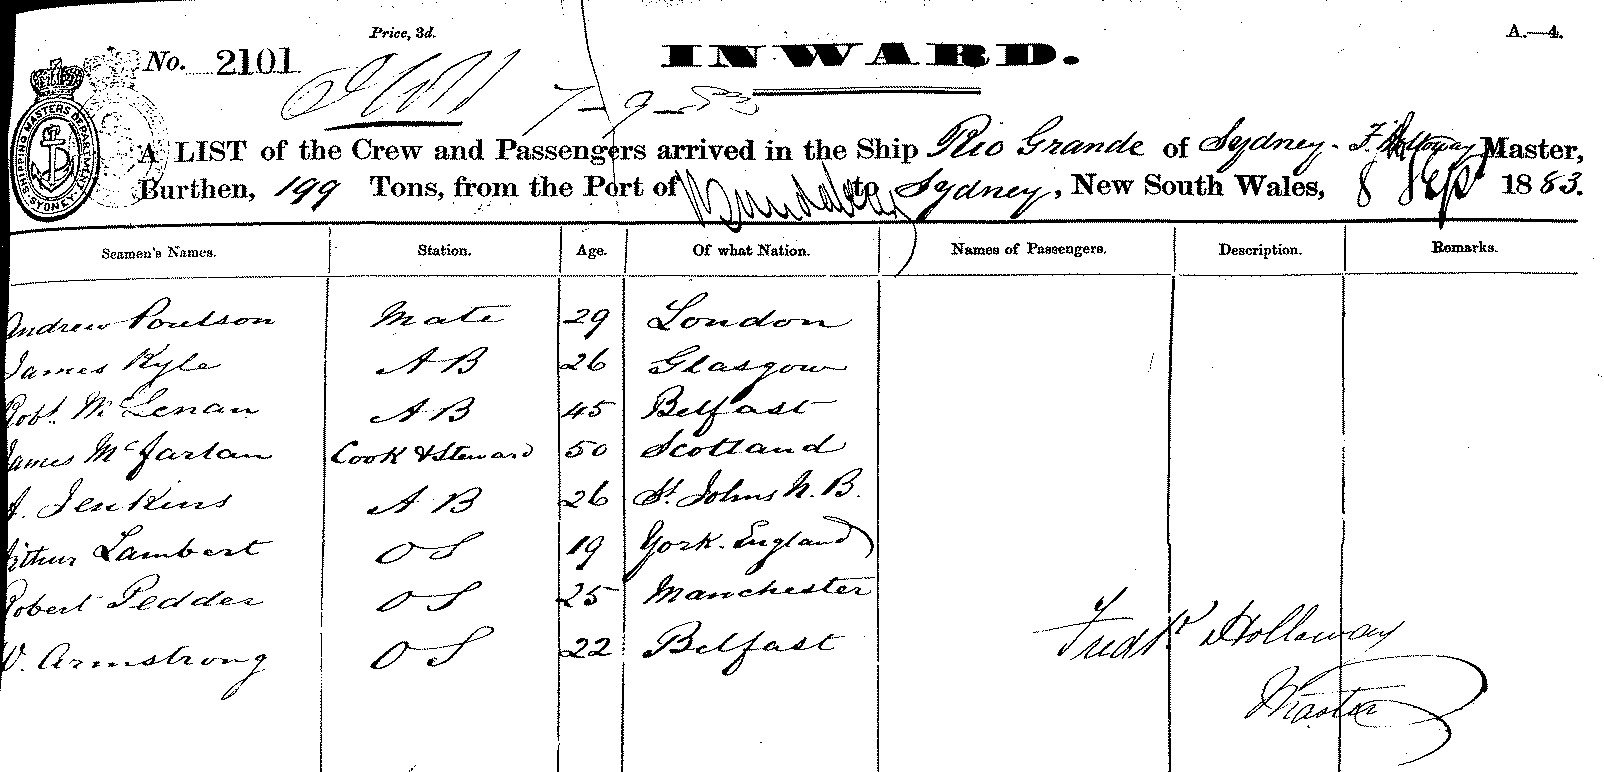 Price, 3d.
A.—4.
No. 2101
INWARD.
7-9-83
SHIPPING MASTERS DEPARTMENT SYDNEY
A LIST of the Crew and Passengers arrived in the Ship Rio Grande of Sydney - F. Holloway Master,
Burthen, 199 Tons, from the Port of to Sydney, New South Wales, 8 Sept 1883.
Seamen's Names. Station. Age. Of what Nation. Names of Passengers. Description. Remarks.
Andrew Poulson Mate 29 London
James Kyle A B 26 Glasgow
Robt. McLenan A B 45 Belfast
James McFarlan Cook & Steward 50 Scotland
Jenkins A B 26 St. Johns N. B.
Arthur Lambert O S 19 York. England
Robert Pedder O S 25 Manchester
W. Armstrong O S 22 Belfast
Fredk. Holloway
Master